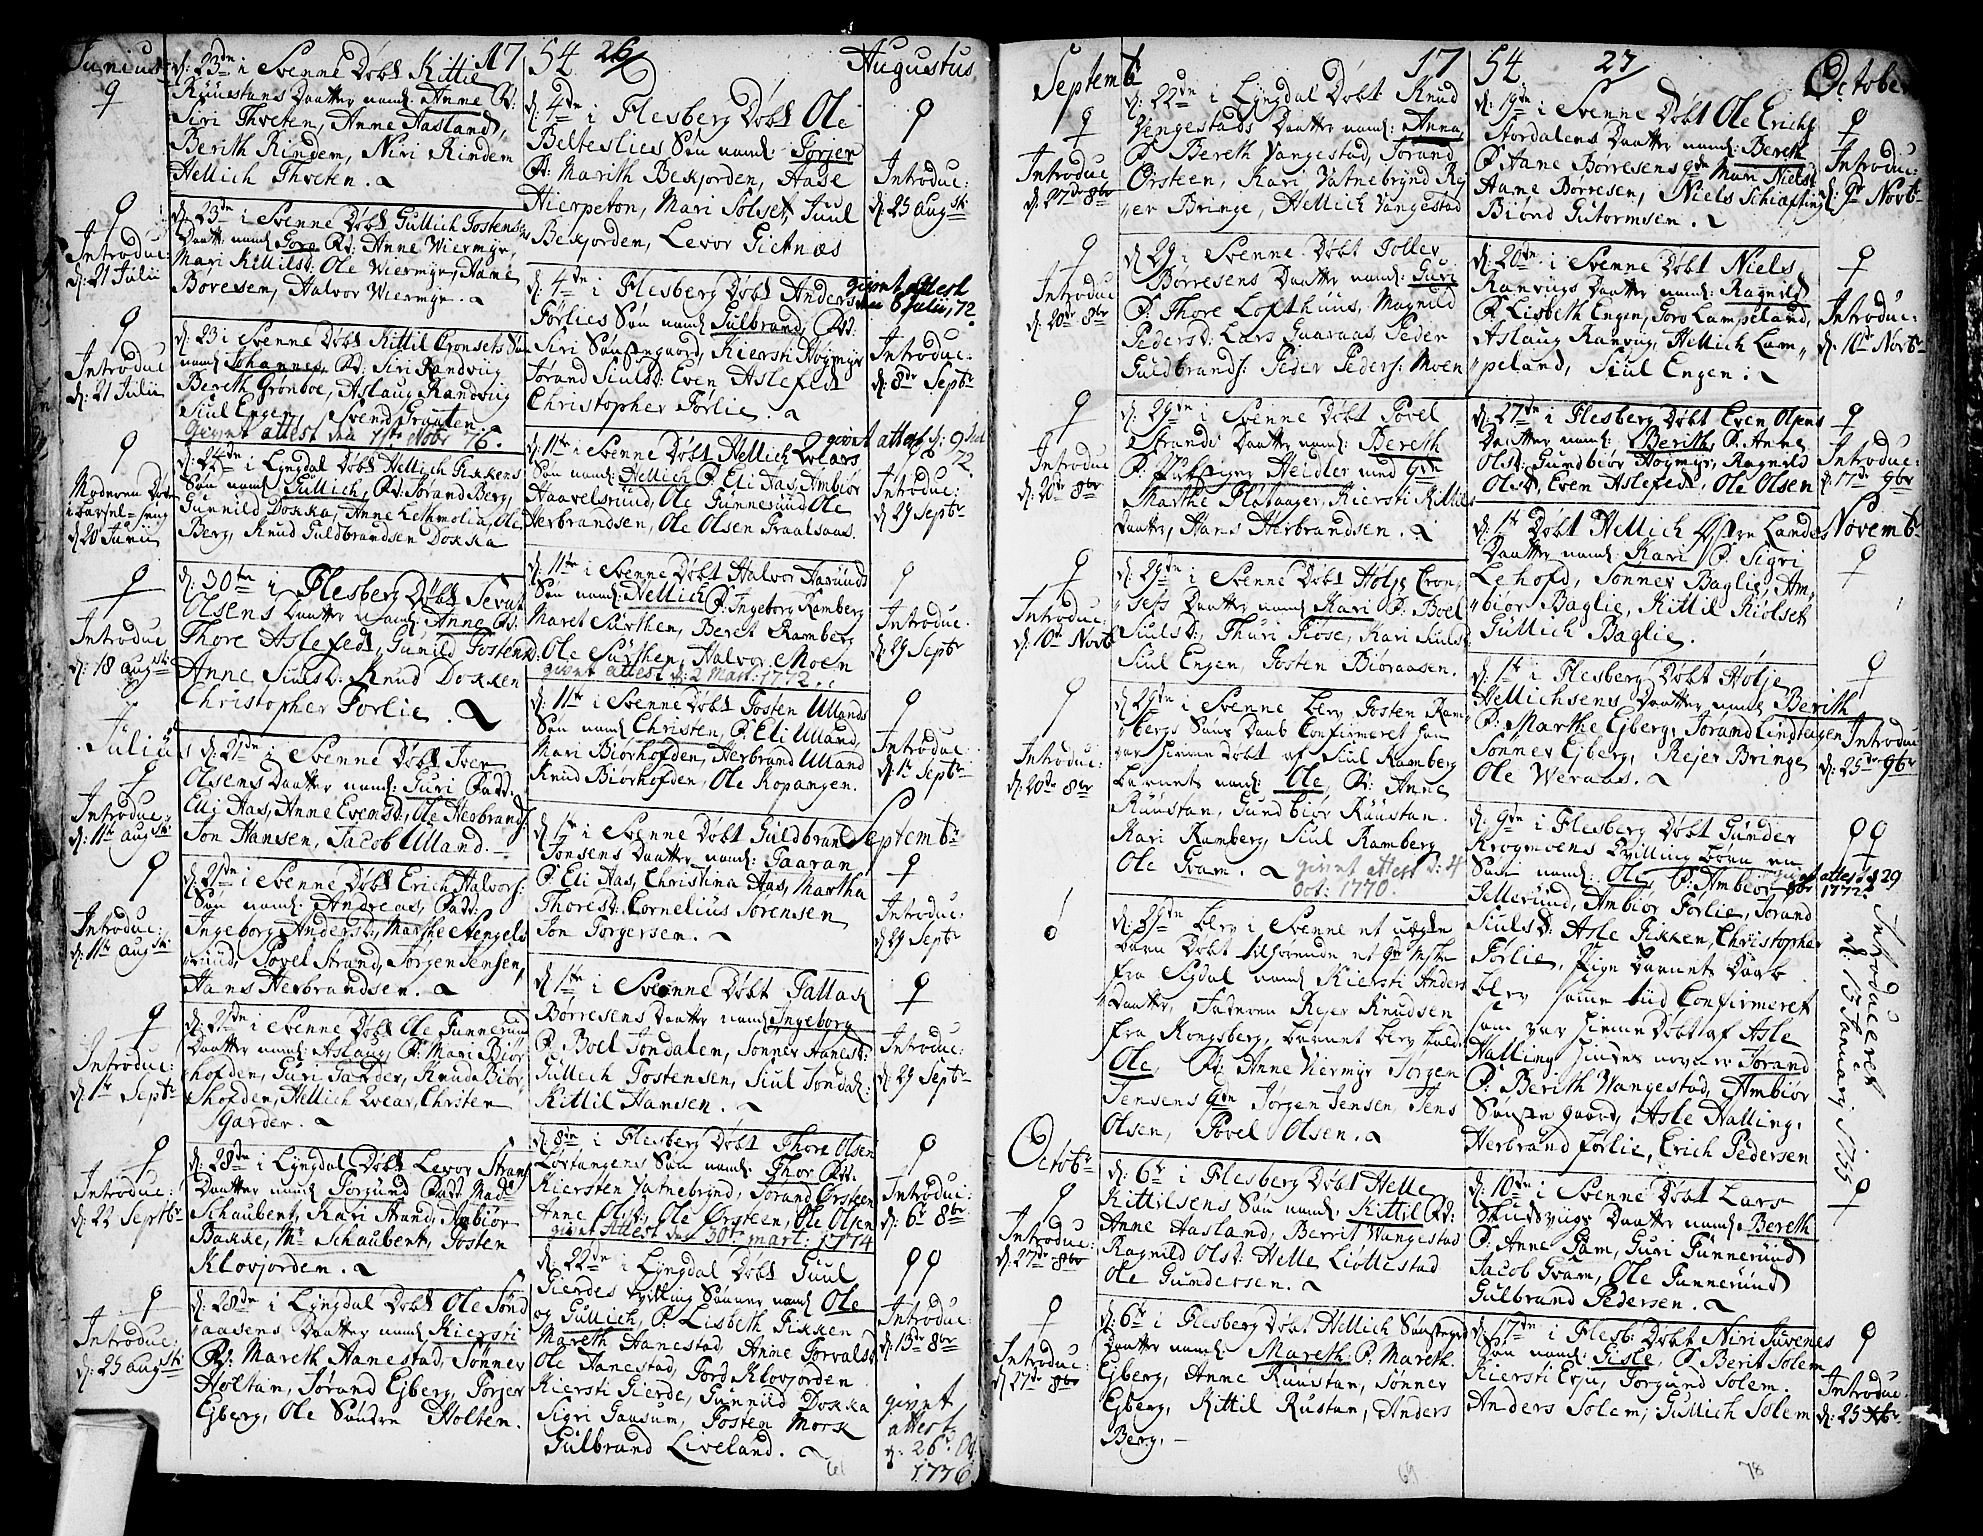 Junius 17
d: 23de i Svenne Døbt Kittil
Ruustans Daatter naml: Anne Fd:
Siri Thveten, Anne Aasland,
Berith Rindem, Niri Rindem
Hellich Thveten.
Introduc:
d: 21 Julii
d: 23de i Svenne Døbt Gullich Tostens:
Daatt: naml: Goro Fd: Anne Wiermyr,
Mari Kittilsd: Ole Wiermyr, Aame
Børresen, Halvor Wiermyr.
Introduc
d: 21 Julii
d: 23 i Svenne Døbt Kittil Cronsets Søn
naml: Johannes, Fd: Siri Randviig
Bereth Grønboe, Aslaug Randviig
Siul Engen, Svend Traaten.
Givet attest den 1ste Nobr 76.
Moderen Døde
i barsel-seng
d 20 Junii
d: 24de i Lyngdal Døbt Hellich Fekkens
Søn naml: Gullich, Fd: Jørand Berg,
Gunnild Dokka, Anne Lethmolia, Ole
Berg, Knud Guldbrandsen Dokka
Introduc
d: 18 augsti:
d: 30te i Flesberg Døbt Sevat
Olsens Daatter naml: Anne Fd:
Thore Aslefedt, Gunild Tostensd.
Anne Siulsd: Knud Dokken
Christopher Førlie.
Julius
Introduc:
d: 11te augsti:
d: 21de i Svenne Døbt Iver
Olsens Daatter naml: Guri Fadd:
Elli Aas, Anne Evensd: Ole Herbrands:
Jon Hansen, Jacob Ulland.
Introduc:
d: 11te augsti:
d: 21de i Svenne Døbt Erich Halvors:
Søn naml: Andreas, Fadd:
Ingeborg Andersd: Marthe Stengels
rud, Povel Strand, Jørgen Jensen,
Hans Herbrandsen.
Introduc:
d: 1te Septbr
d: 21de i Svenne Døbt Ole Funnerud
Daatter naml: Aslaug, F: Mari Biør
hofden, Guri Garder, Knud Biør
hofden, Hellich Qvear, Christen
Garder.
Introduc:
d: 22 Septbr
d: 28de i Lyngdal Døbt Levor Strans
Daatter naml: Torgund Fadd: Made
Schaubert, Kari Strand, Ambiør
Bakke, Mr Schaubert, Tosten
Klovjorden.
Introduc:
d: 25 augsti:
d: 28de i Lyngdal Døbt Ole Sønd
raasens Daatter naml: Kiersti
Fd: Mareth Aanestad, Sønnev
Holtan, Jørand Ejberg, Torjer
Ejberg, Ole Søndre Holten.
54 26
Augustus
d: 4de i Flesberg Døbt Ole
Belteslies Søn naml: Torjer
Fd: Marith Bekjorden, Aase
Hierpeton, Mari Solset, Juul
Bekjorden, Levor Gietnæs
Introduc:
d: 25 augsti:
d: 4de i Flesberg Døbt Anders
Førlies Søn naml: Gulbrand, Fd:
Siri Sønstegaard, Kiersti Høymyr
Jørand Siulsd: Even Aslefedt
Christopher Førlie.
givet attest
den 8 Julii, 72.
Introduc:
d: 8de Septbr
d: 11te i Svenne Døbt Hellich Qvears
Søn naml: Hellich F: Eli Aas, Ambiør
Haavelsrud, Ole Gunnesrud Ole
Herbrandsen, Ole Olsen Graalsaas.
givet attest d: 9 Jul
72.
Introduc:
d 29 Septbr
d: 11te i Svenne Døbt Halvor Aasunds
Søn naml: Hellich F: Ingeborg Ramberg
Maret Sürthen, Beret Ramberg
Ole Sürthen, Halvor Moen
givet attest d: 2 Mart: 1772.
Introduc:
d: 29 Septbr
d: 11te i Svenne Døbt Tosten Ullands
Søn naml: Christen, F: Eli Ulland,
Mari Biorhofden, Herbrand Ulland
Knud Biorhofden, Ole Kopangen.
Introduc
d: 1te Septbr
Septembr
d: 1te i Svenne Døbt Guldbrand
Jonsens Daatter naml: Gaaran
F: Eli Aas, Christina Aas, Martha
Thoresd: Cornelius Sørensen
Jon Torgersen.
Introduc:
d 29 Septbr
d: 1te i Svenne Døbt Tallak
Børresens Daatter naml: Ingeborg
F: Boel Jondalen, Sonnev Aanesd:
Gullich Tostensen, Siul Jondal:
Kittil Hansen.
Introduc:
d: 29 Septbr
d: 8de i Flesberg Døbt Thore Olsen
Løvtangens Søn naml: Thor Fd:
Kiersten Vatnebrynd, Jørand Ørsteen
Anne Olsd: Ole Ørsteen, Ole Olsen
givet Attest den 30te mart: 1774
Introduc:
d: 6te 8br
d: 22de i Lyngdal Døbt Juul
Gierdes tvilling Sønner naml: Ole
og Gullich, F: Lisbeth Fikken
Mareth Aanestad, Anne Torvalsd:
Ole Aanestad, Tord Klovjorden
Kiersti Gierde, Gunnild Dokka
Sigri Gaasum, Tosten Mork
Gulbrand Liveland.
Introduc:
d: 13de 8br
givet
attest
d: 26 Oct
1776
61
Septembr 17
d: 22de i Lyngdal Døbt Knud
Vengestads Daatter naml: Anna,
F: Bereth Vangestad, Jørand
Ørsteen, Kari Vatnebrynd Rej
er Bringe, Hellich Vangestad
Introduc
d: 27de 8br
d: 29 i Svenne Døbt Tollev
Børresens Daatter naml: Guri
F: Thore Lofthuus, Magnild
Pedersd: Lars Gaaraas Peder
Guldbrands: Peder Peders: Moen
Introduc
d: 20de 8br
d: 29de i Svenne Døbt Povel
Strands Daatter naml: Bereth
Heidler med qde
Marthe Flataager, Kiersti Kittils
Daatter, Hans Herbrandsen.
Introduc
d: 20de 8br
d: 29de i Svenne Døbt Holje Cron
sets Daatter naml: Kari F: Boel
Siulsd: Thuri Fiøse, Kari Siulsd
Siul Engen, Tosten Biøraasen.
Introduc:
d: 10de Novb
d: 29de i Svenne blev Tosten Ram
bergs Søns Daab Confirmeret som
var hiemmedøbt af Siul Ramberg
barnets naml: Ole, Fd: Anne
Ruustan, Gundbiør Ruustan.
Kari Ramberg, Siul Ramberg
Ole Gvam. givet attest d: 4
Oct: 1770.
Introduc:
d: 20de 8br
d: 29de blev i Svenne et uægte
barn Døbt tilhørende et
fra Sigdal naml: Kiersti Anders
Daatter, Faderen Rejer Knudsen
fra Kongsberg, barnet blev kald:
Ole, Fd: Anne Viermyr Jørgen
Jensens qde Jørgen Jensen, Jens
Olsen, Povel Olsen.
Octobr
Introduc:
d: 27de 8br
d: 6te i Flesberg Døbt Helle
Kittilsens Søn naml: Kittil Fd:
Anne Aasland, Berrit Wangestad
Ragnild Olsd: Helle Liøttestad
Ole Gundersen.
Introduc:
d 27de 8br
d: 6te i Flesberg Døbt Hellich Sønstegrd
Daatter naml: Mareth F: Mareth
Ejberg, Anne Ruustan, Sønnev
Ejberg, Kittil Rustan, Anders
Berg.
69
54 27
October
d: 19de i Svenne Døbt Ole Erichs:
Stordalens Daatter naml: Bereth
F: Aane Børresens qde Mari Niels:
Aane Børresen, Niels Schiøpping
Biønd Gutormsen.
Introduc:
d: 9de Novbr
d: 20de i Svenne Døbt Niels
Ranvigs Daatter naml: Ragnild
F: Lisbeth Engen, Goro Lampeland,
Aslaug Ranvig, Hellich Lam
peland, Siul Engen.
Introduc:
d: 10de Novbr
d: 27de i Flesberg Døbt Even Olsens
Daatter naml: Berith F: Anne
Olsd: Gundbiør Høymyr, Ragnild
Olsd, Even Aslefedt, Ole Olsen
Introduc:
d: 17de 9br
Novembr
d: 1te Døbt Hellich Østre Landes
Daatter naml: Kari F: Sigri
Lehofd, Sonnev Baglie, Am
biør Baglie, Kittil Kiølset
Gullich Baglie.
d: 1te i Flesberg Døbt Holje
Hellichsens Daatter naml: Berith
F: Marthe Ejberg, Jørand Lindteigen
Sonnev Ejberg, Rejer Bringe
Ole Weraas.
Introduc
d: 25de 9br
d: 9de i Flesberg Døbt Gunder
Krogmoens tvilling børn en
Søn naml: Ole, F: Ambiør
Tellerund, Ambiør Førlie, Jørand
Siulsd: Asle Fikken, Christopher
Førlie, Pige barnets Daab
blev samme tiid Confirmeret
som var hiemmedøbt af Asle
Halling, hindes navn er Jørand
F: Berith Wangestad, Ambiør
Sønstegaard, Asle Halling,
Herbrand Førlie, Erich Pedersen
attest d 29
8br 1772.
Introduceret
d: 13 Januarij 1755
d: 10de i Svenne Døbt Lars
Skudsvigs Daatter naml: Bereth
F: Anne Fam, Guri Funnerund
Jacob Gvam, Ole Funnerund
Gulbrand Pedersen.
d: 17de i Flesb: Døbt Niri Juvenes
Søn naml: Gisle, F: Berit Solem
Kiersti Evju, Torgund Solem.
Anders Solem, Gullich Solem
Introduc:
d: 25 Xbr
78